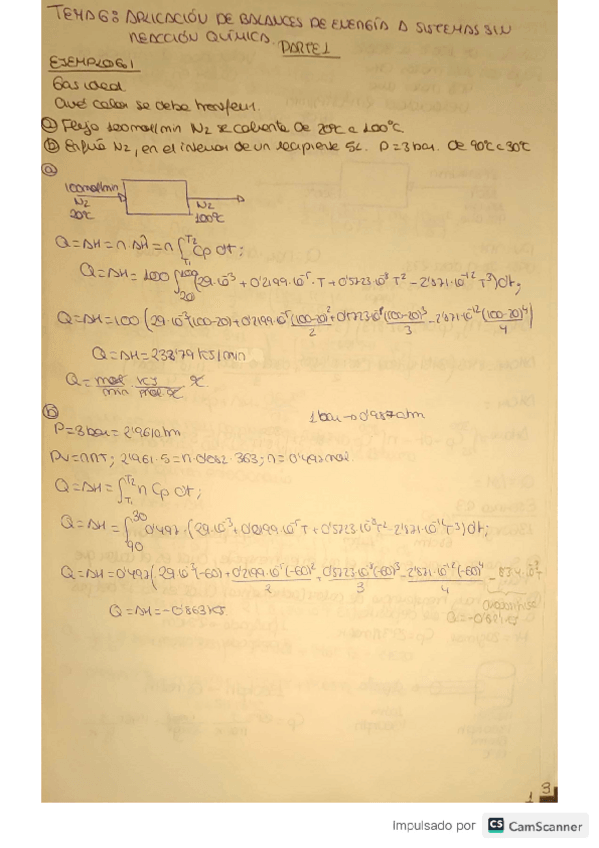 TEMA 6: APLICACIÓN DE BALANCES DE ENERGÍA A SISTEMAS SIN
REACCIÓN QUÍMICA. PARTE 1
EJEMPLO 6.1
Gas ideal
Qué calor se debe transferir.
ⓐ Flujo 100mol/min N₂ se calienta de 20ºC a 100ºC.
ⓑ Enfría N₂, en el interior de un recipiente 5L. P=3bar. de 90ºC a 30ºC
ⓐ
100mol/min
N₂
20ºC
N₂
100ºC
Q=ΔH=n·ΔĤ=n∫T₁T₂ Cp dt;
Q=ΔH=100∫20100(29·10⁻³+0'2199·10⁻⁵·T+0'5723·10⁻⁸T²-2'871·10⁻¹²T³)dt;
Q=ΔH=100(29·10⁻³(100-20)+0'2199·10⁻⁵(100-20)²/2+0'5723·10⁻⁸(100-20)³/3-2'871·10⁻¹²(100-20)⁴/4)
Q=ΔH=232'79 KJ/min
Q=mol/min·KJ/mol·ºC·ºC
ⓑ
1bar→0'987atm
P=3bar=2'961atm
PV=nRT; 2'961·5=n·0'082·363; n=0'497mol.
Q=ΔH=∫T₁T₂ n Cp dt;
Q=ΔH=∫9030 0'497·(29·10⁻³+0'2199·10⁻⁵T+0'5723·10⁻⁸T²-2'871·10⁻¹²T³)dt;
Q=ΔH=0'497(29·10⁻³(-60)+0'2199·10⁻⁵(-60)²/2+0'5723·10⁻⁸(-60)³/3-2'871·10⁻¹²(-60)⁴/4
Q=ΔH=-0'863KJ
Impulsado por CS CamScanner